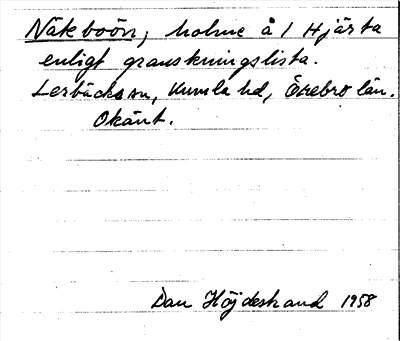 Näkboön; holme å 1 Hjärta
enligt granskningslista.
Lerbäcks sn, Kumla hd, Örebro län.
Okänt.
Dan Höjdestrand 1958